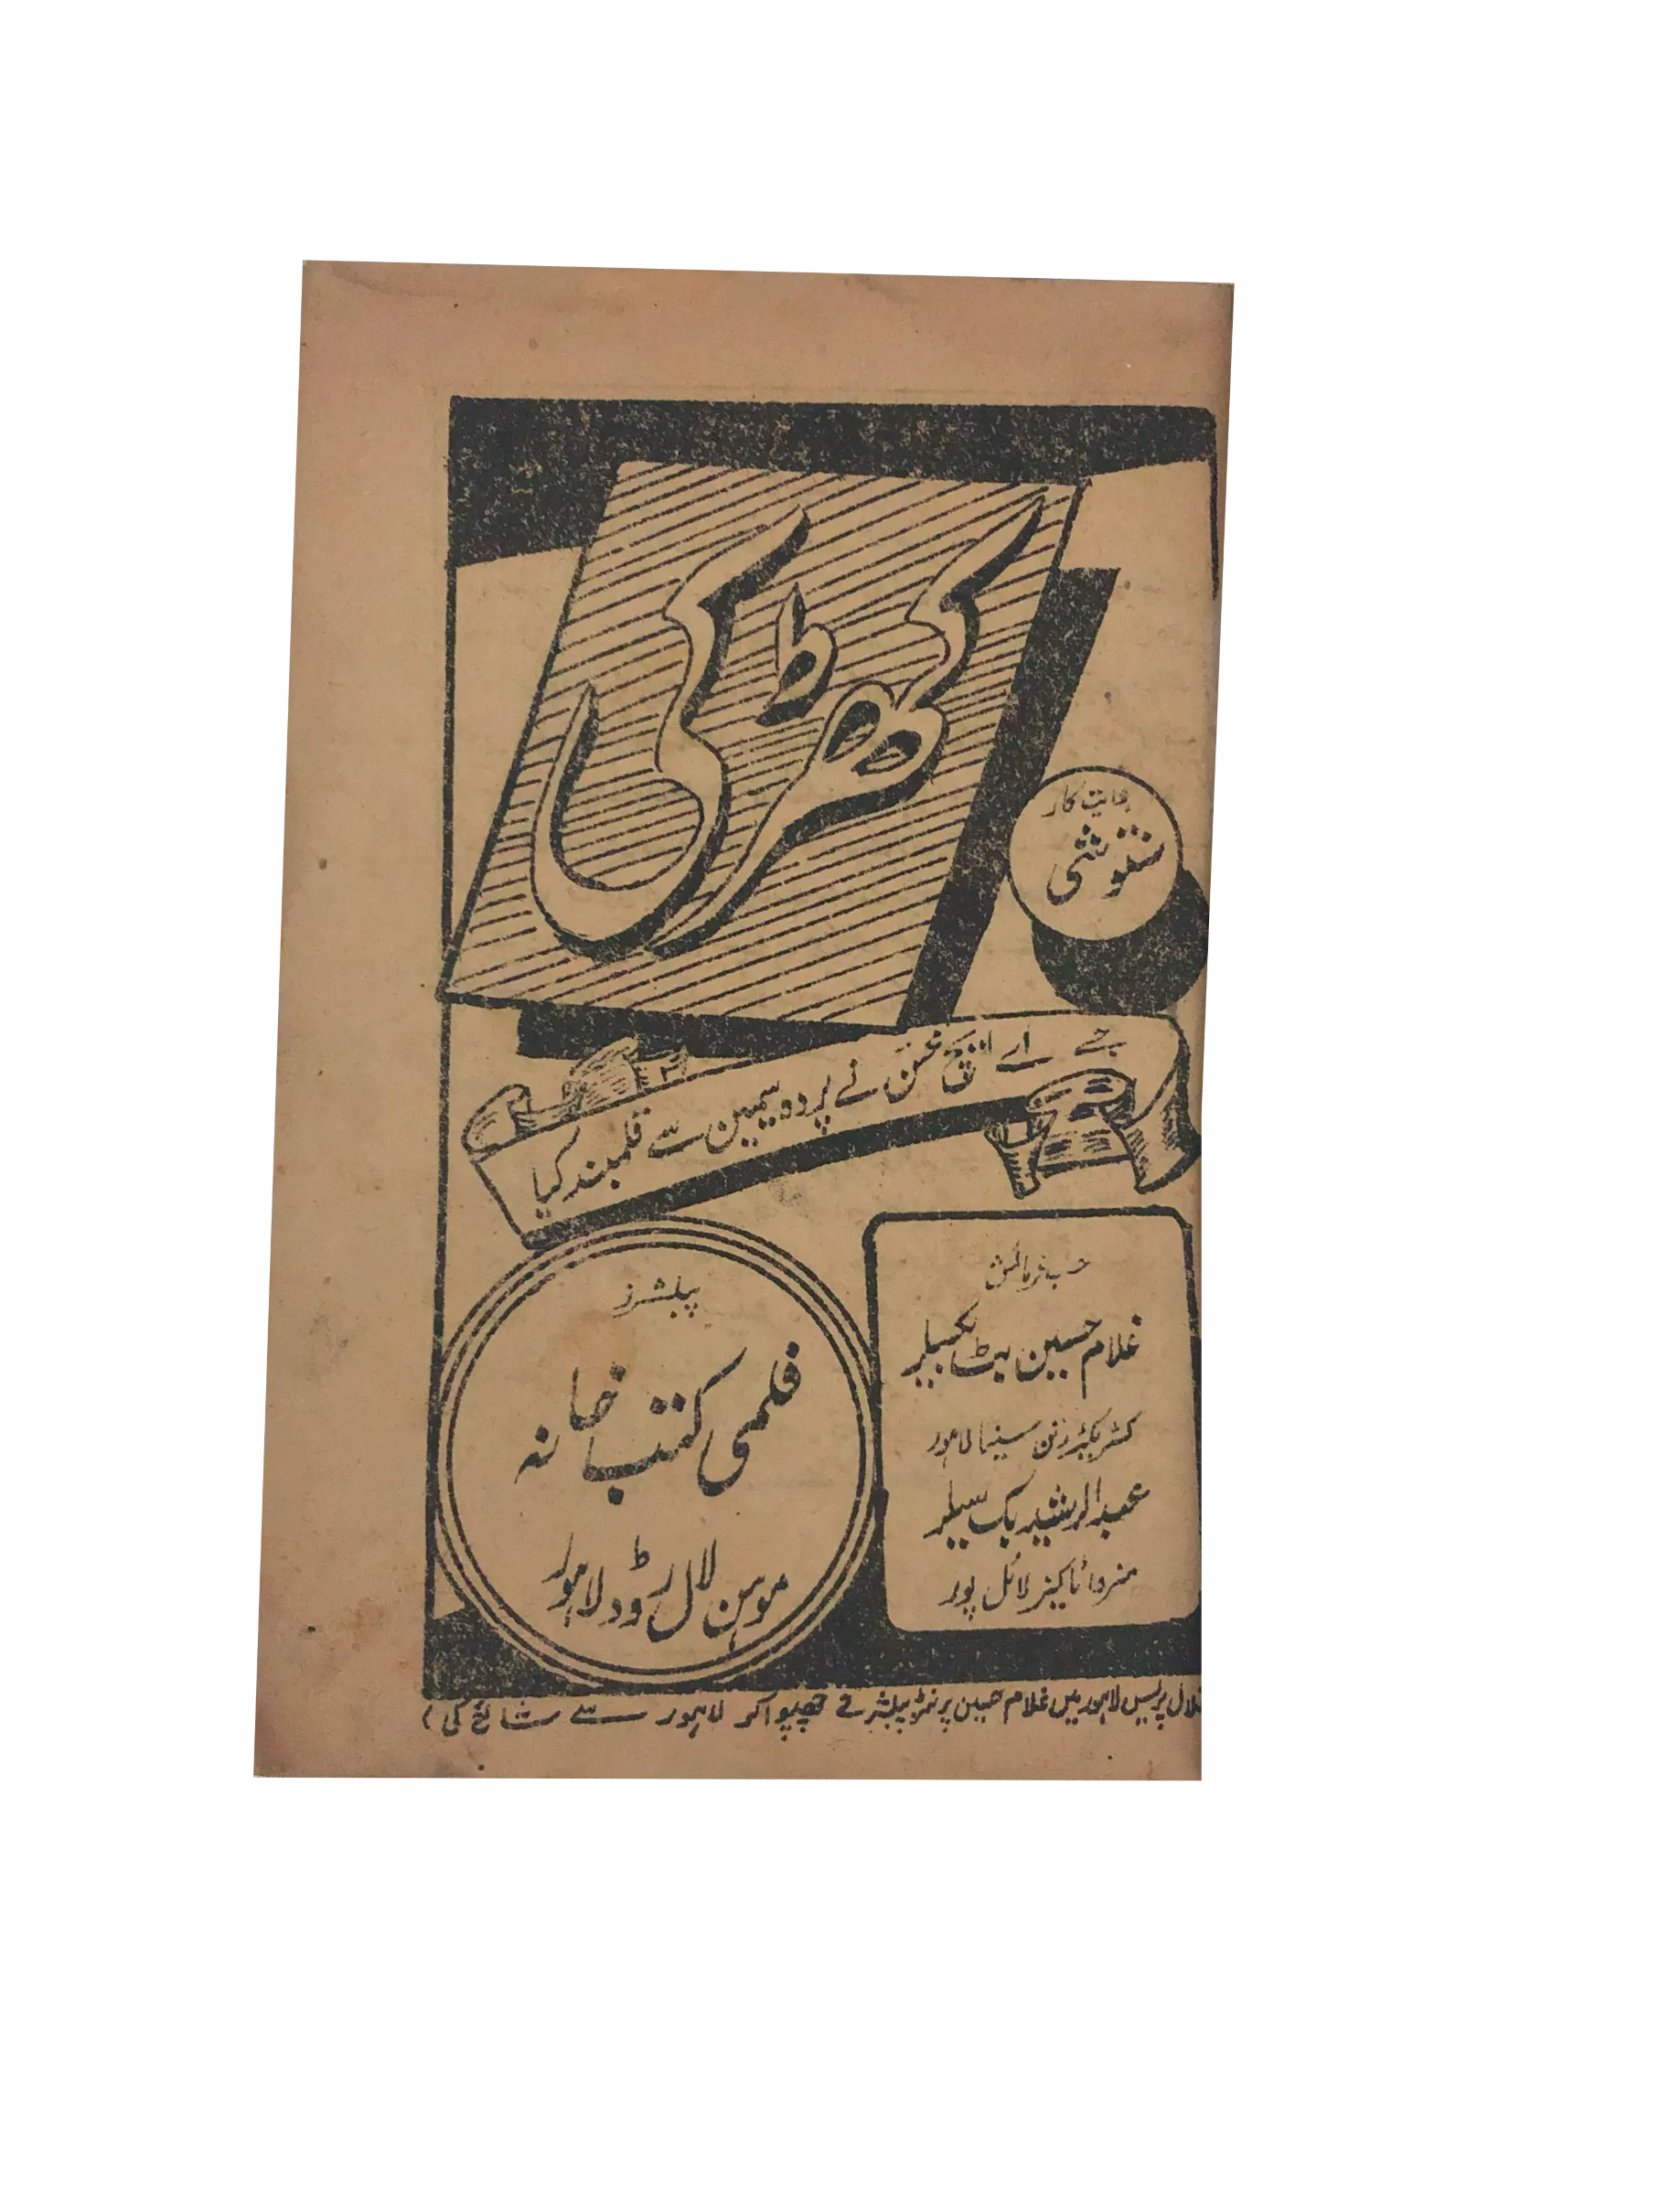 کھڑکی
ہدایت کار
سنتوشی
جے اے ایچ غنی نے پردہ سیمیں سے قلمبند کیا
حسب فرمائش
غلام حسین بٹ بکسیلر
لاہور سینما
عبدالرشید بک سیلر
منروا ٹاکیز لائل پور
پبلشرز
فلمی کتب خانہ
موہن لال روڈ لاہور
پریس لاہور میں غلام حسین پرنٹر پبلشر نے چھپوا کر لاہور سے شائع کی)